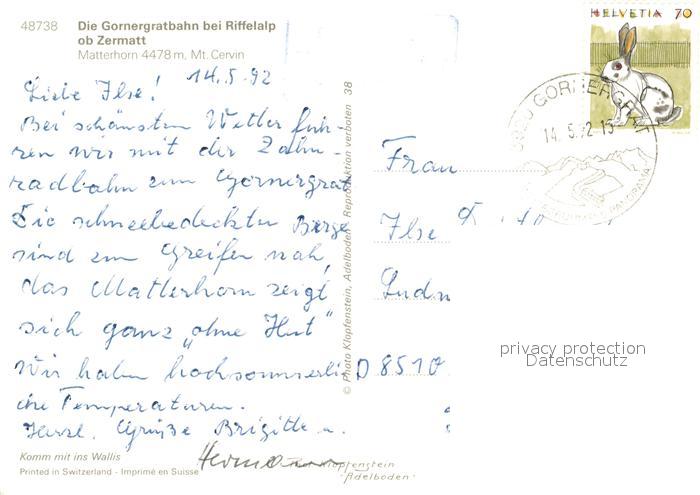 48738
Die Gornergratbahn bei Riffelalp
ob Zermatt
Matterhorn 4478 m, Mt. Cervin
HELVETIA 70
14.5.92
Liebe Ilse!
Bei schönstem Wetter fuh-
ren wir mit der Zahn-
radbahn zum Gornergrat
Die schneebedeckten Berge
sind zum Greifen nah,
das Matterhorn zeigt
sich ganz „ohne Hut"
Wir haben hochsommerli
che Temperaturen.
Herzl. Grüße Brigitte u.
Hermann
Komm mit ins Wallis
Printed in Switzerland - Imprimé en Suisse
Klopfenstein
"Adelboden"
© Photo Klopfenstein, Adelboden Reproduktion verboten 38
Frau
Ilse
D 8510
GORNERGRAT
14.5.92
PANORAMA
privacy protection
Datenschutz